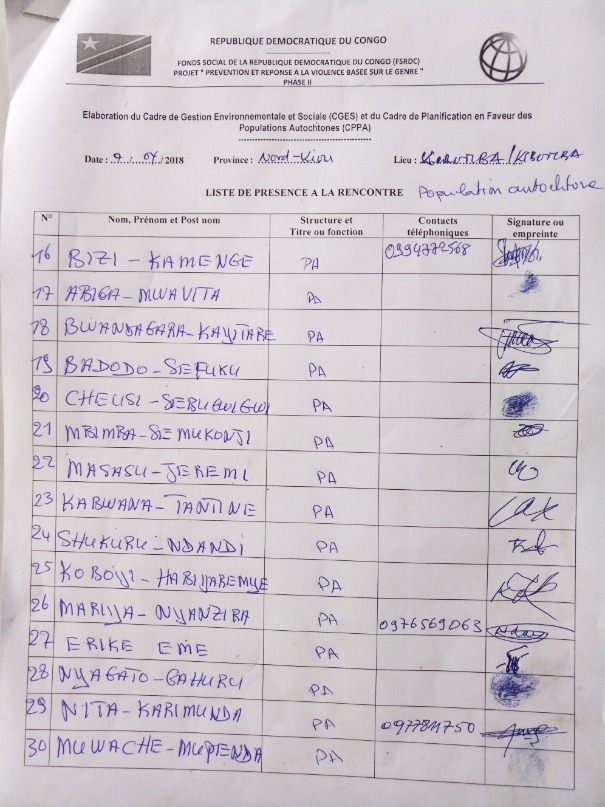 REPUBLIQUE DEMOCRATIQUE DU CONGO
FONDS SOCIAL DE LA REPUBLIQUE DEMOCRATIQUE DU CONGO (FSRDC)
PROJET " PREVENTION ET REPONSE A LA VIOLENCE BASEE SUR LE GENRE "
PHASE II
Elaboration du Cadre de Gestion Environnementale et Sociale (CGES) et du Cadre de Planification en Faveur des
Populations Autochtones (CPPA)
Date : 9 / 07 / 2018 Province : Nord-Kivu Lieu :
LISTE DE PRESENCE A LA RENCONTRE Population autochtone
N° Nom, Prénom et Post nom Structure et Titre ou fonction Contacts téléphoniques Signature ou empreinte
16 BIZI - KAMENGE PA 0994772568
17 ABIGA - MWAVITA PA
18 BWANDAGARA - KAYITARE PA
19 BADODO - SEFUKU PA
20 CHEUSI - SEBUGWIGWI PA
21 MBIMBA - SEMUKONJI PA
22 MASASU - JEREMI PA
23 KABWANA - TANTINE PA
24 SHUKURU - NDANDI PA
25 KOBOYI - HABIYAREMYE PA
26 MARIYA - NYANZIRA PA 0976569063
27 ERIKE EME PA
28 NYAGATO - GAHURU PA
29 NITA - KARIMUNDA PA 0977811750
30 MUWACHE - MUPENDA PA